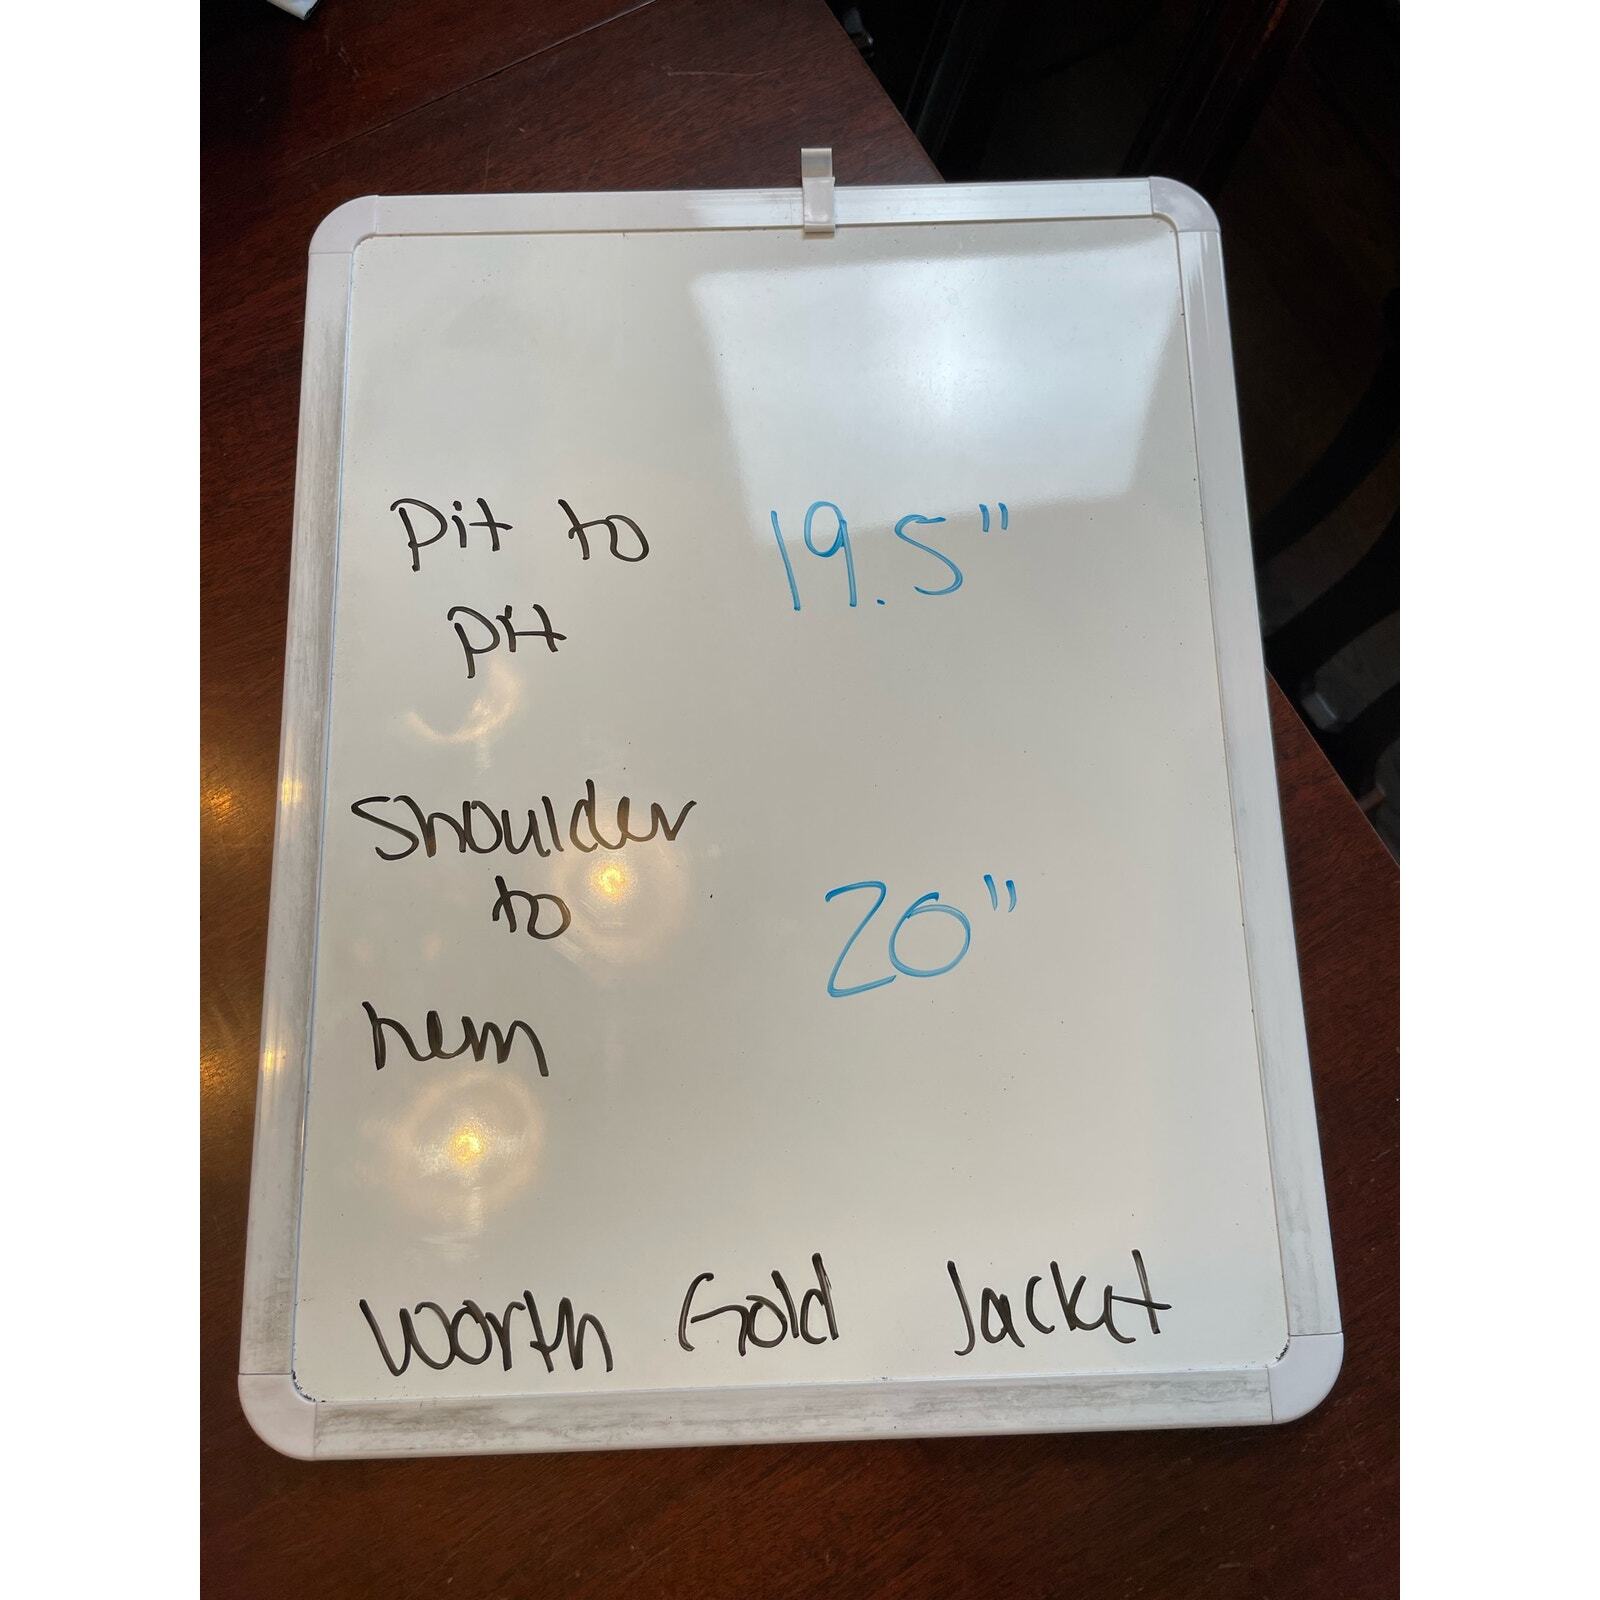 Pit to 19.5"
pit
Shoulder
to 20"
hem
Worth Gold Jacket